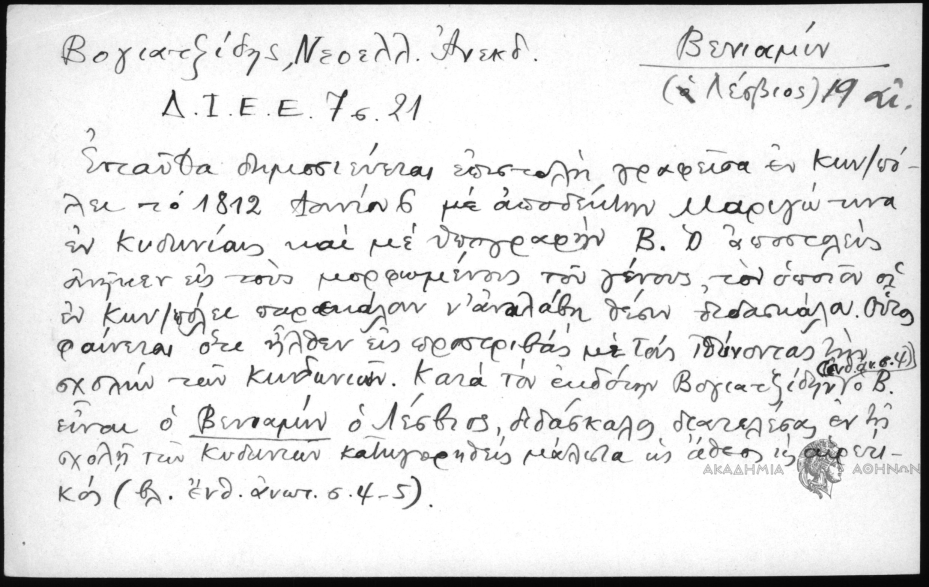 Βογιατζίδης, Νεοελλ. Ἀνεκδ.
Βενιαμίν
(ὁ Λέσβιος) 19 αἰ.
Δ.Ι.Ε.Ε. 7 σ. 21
Ἐνταῦθα δημοσιεύεται ἐπιστολὴ γραφεῖσα ἐν Κων/πό-
λει τὸ 1812 Ἰουνίου 6 μὲ ἀποδέκτην Μαριγώ τινα
ἐν Κυδωνίαις καὶ μὲ ὑπογραφὴν Β. Ὁ ἀποστολεὺς
ἀνῆκεν εἰς τοὺς μορφωμένους τοῦ γένους, τὸν ὁποῖον οἱ
ἐν Κων/πόλει παρεκάλουν ν' ἀναλάβῃ θέσιν διδασκάλου. Οὗτος
φαίνεται ὅτι ἦλθεν εἰς προστριβὰς μὲ τοὺς ἰθύνοντας τὴν
σχολὴν τῶν Κυδωνιῶν. (ἔνθ. ἀν. σ. 4) Κατὰ τὸν ἐκδότην Βογιατζίδην ὁ Β.
εἶναι ὁ Βενιαμίν ὁ Λέσβιος, διδάσκαλος διατελέσας ἐν τῇ
σχολῇ τῶν Κυδωνιῶν κατηγορηθεὶς μάλιστα ὡς ἄθεος ὡς αἱρετι-
κός (βλ. ἔνθ. ἀνωτ. σ. 4-5).
ΑΚΑΔΗΜΙΑ ΑΘΗΝΩΝ